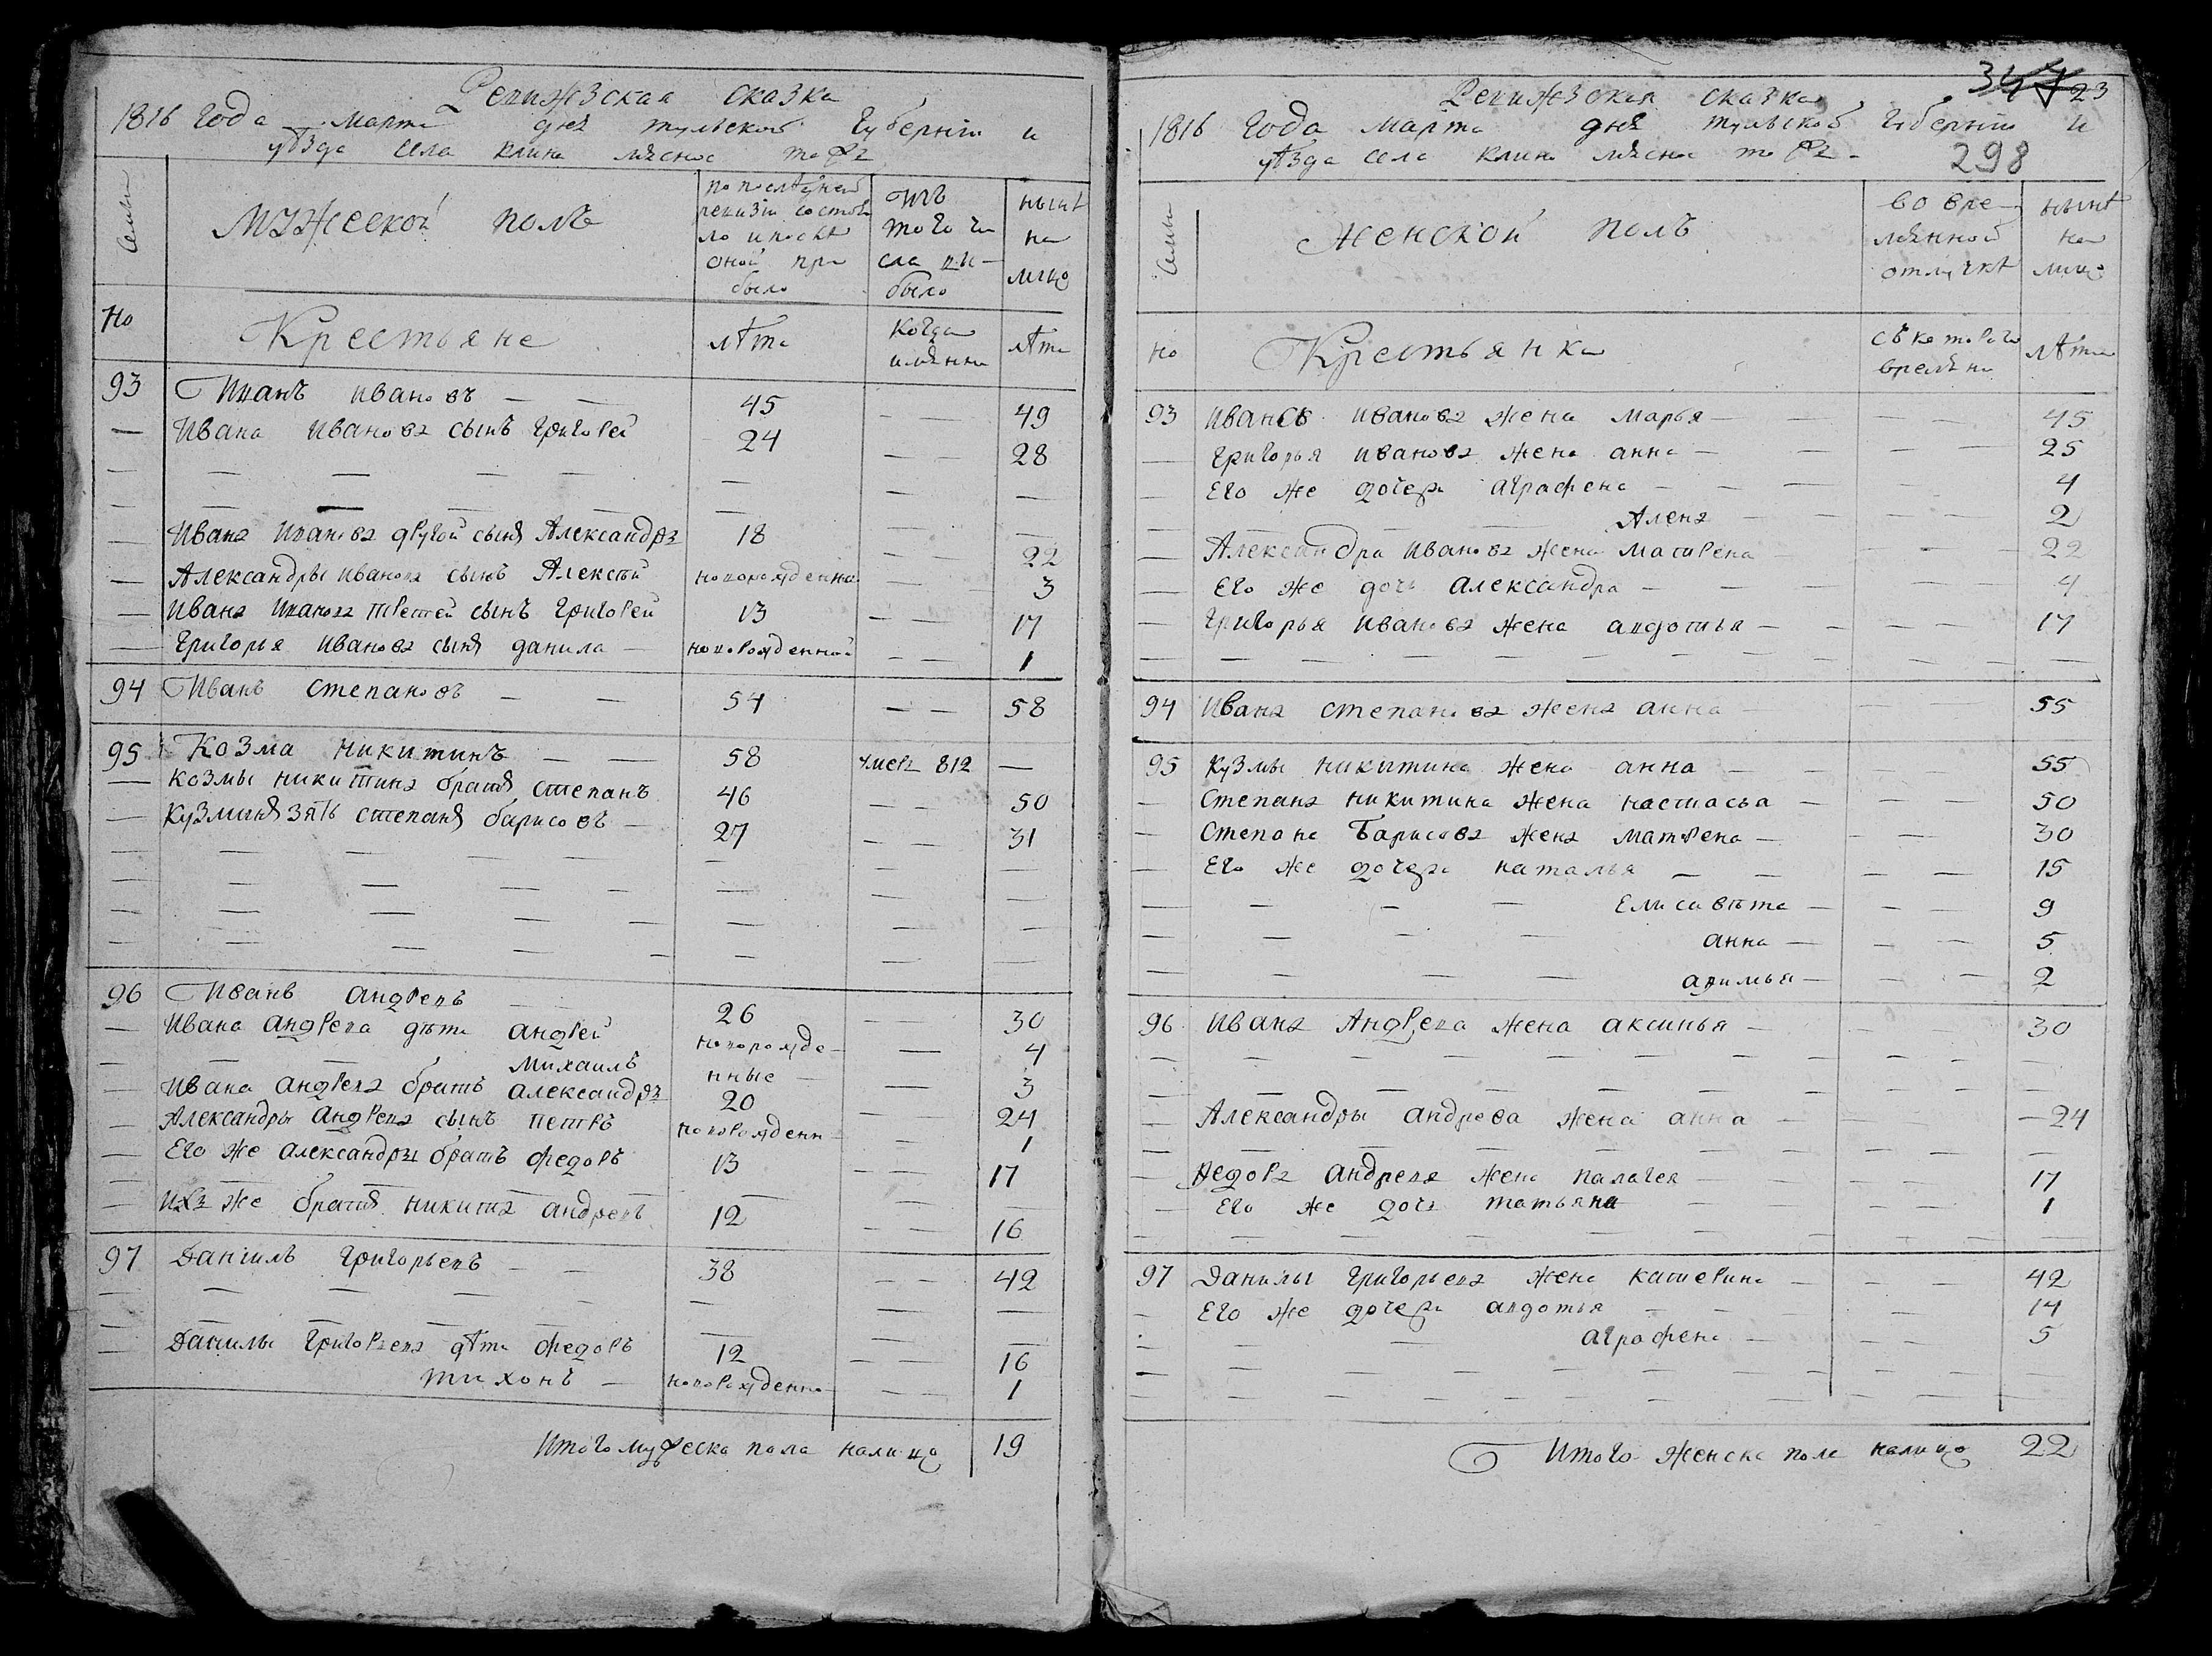 Ревижзская сказка
1816 года марта дня тульской губерніи и
уѣзда села клина мясное тожъ
семьи
мужеской полъ
по последней ревизіи состояло и после оной прибыло
изъ того числа выбыло
нынѣ на лицо
но
Крестьяне
лѣта
когда имянно
лѣта
93 Иванъ ивановъ — — 45 — — 49
— Ивана иванова сынъ григорей 24 — — 28
— Ивана Иванова другой сынъ Александръ 18 — — 22
— Александры иванова сынъ Алексѣй новорожденны — — 3
— Ивана Иванова третей сынъ григорей 13 — — 17
— григорья иванова сынъ данила — новорожденной — — 1
94 Иванъ степановъ — — 54 — — 58
95 Козма никитинъ — — 58 умеръ 812 —
— козмы никитина братъ степанъ 46 — — 50
— кузминъ зять степанъ барисовъ — 27 — — 31
96 Иванъ андревъ — 26 — 30
— Ивана андрева дѣти андрей новорожде- — 4
— михаилъ нные — 3
— Ивана андрева братъ александръ 20 — 24
— Александры андрева сынъ петръ новорожденн — 1
— Его же александры братъ федоръ 13 — — 17
— ихъ же братъ никита андревъ 12 — — 16
97 Даніилъ григорьевъ — — 38 — — 42
— Данилы григорьева дѣти федоръ 12 — — 16
тихонъ — новорожденно — — 1
Итого мужеска пола налицо 19
347 23
Ревижзская сказка
1816 года марта дня тульской губерніи и
уѣзда села клина мясное тожъ
298
семьи
женской полъ
во временной отлучкѣ
нынѣ на лицо
но
Крестьянки
съ котораго времяни
лѣта
93 Иванов иванова жена марья — — — 45
— григорья иванова жена анна — — — — 25
— Его же дочери аграфена — — — 4
— Алена — — — 2
— Александра иванова жена матврена — — 22
— Его же дочь александра — — — — 4
— григорья иванова жена авдотья — — — — 17
94 Ивана степанова жена анна — — 55
95 кузмы никитина жена анна — — — 55
— степана никитина жена настасья — — — 50
— степана барисова жена матрена — — — 30
— Его же дочери наталья — — — — 15
— Елисавѣта — — — 9
— анна — — — 5
— акимья — — — 2
96 Ивана Андрева жена аксинья — — 30
— Александры андрева жена анна — — 24
— Федора андрева жена палагея — — — 17
— Его же дочь татьяна — — — 1
97 Данилы григорьева жена катерина — — — 42
— Его же дочери авдотья — — — 14
— аграфена — — — 5
Итого женска пола налицо 22